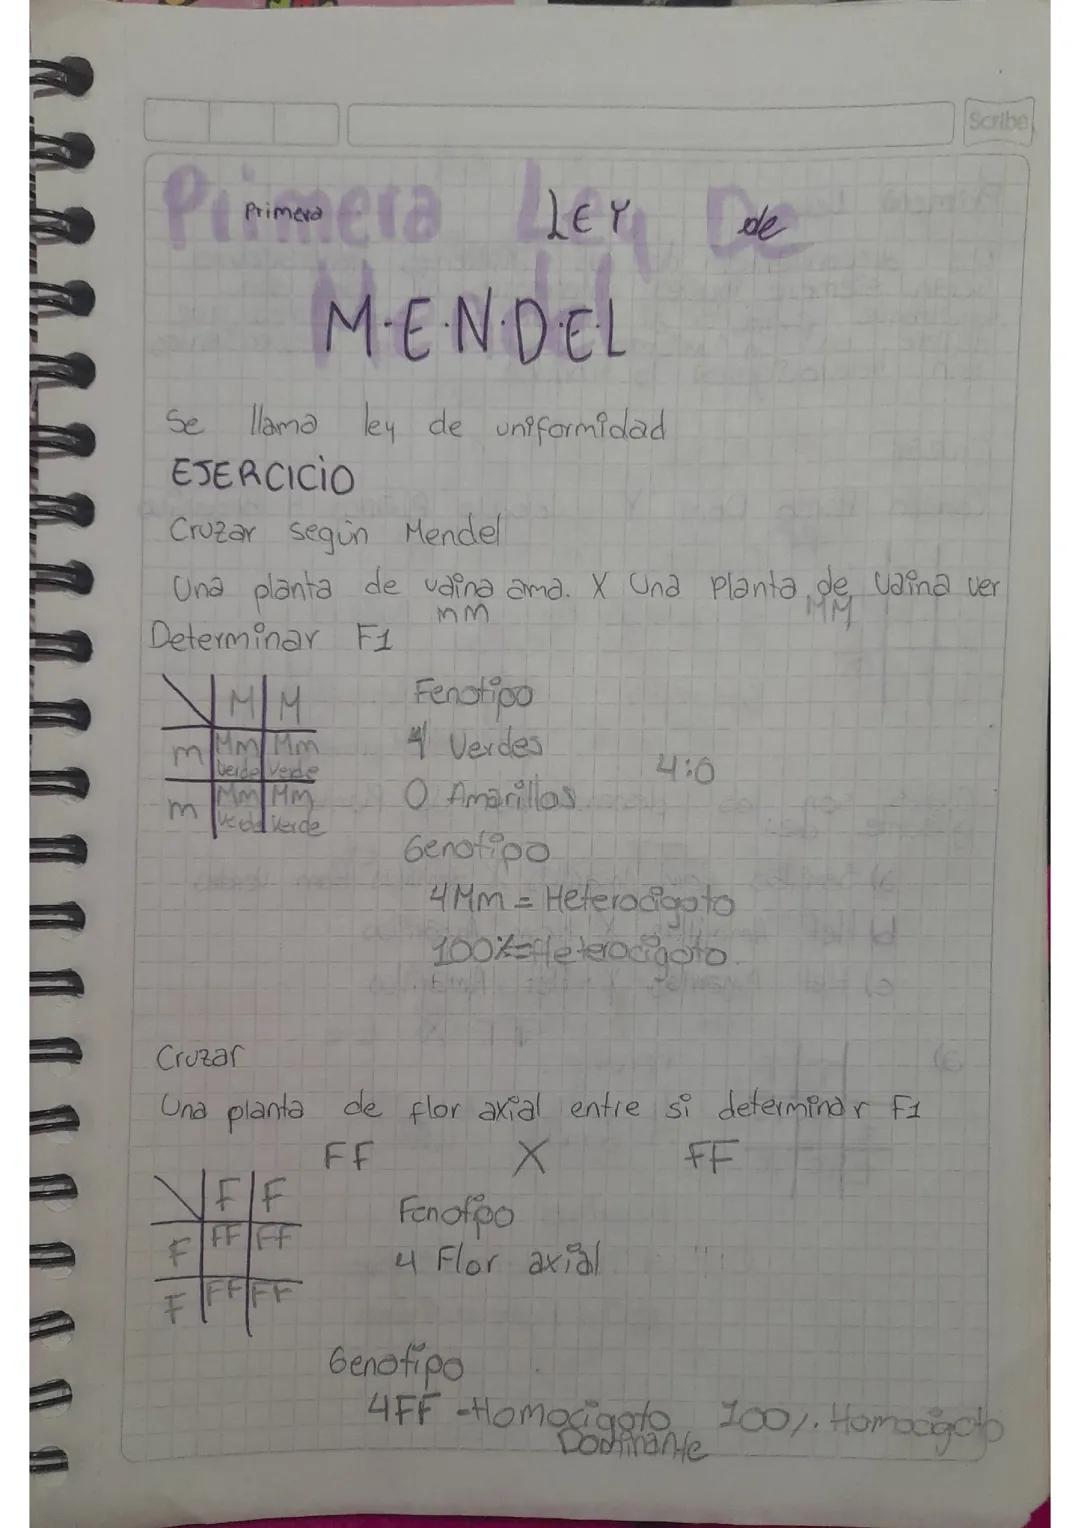 Scribe
Primera Ley De
Primera LEY de
Mendel
M.E.N.D.E.L
Se llama ley de uniformidad
EJERCICIO
Cruzar según Mendel
Una planta de vaina ama. X Una Planta de Vaina ver
mm MM
Determinar F1
M M
m Mm Mm
Verde Verde
m Mm Mm
Verde Verde
Fenotipo
4 Verdes
4:0
0 Amarillas
Genotipo
4Mm = Heterocigoto
100%=Heterocigoto
Cruzar
Una planta de flor axial entre si determinar F1
FF X FF
F F
F FF FF
F FF FF
Fenotipo
4 Flor axial
Genotipo
4FF -Homocigoto 100%. Homocigoto
Dominante